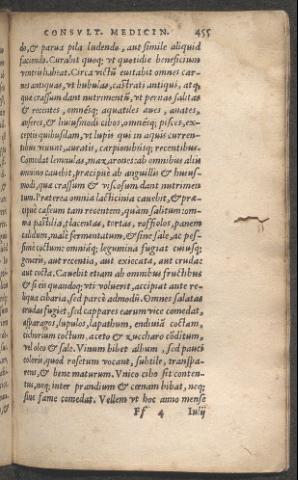 CONSVLT. MEDICIN. 455
do, & parua pila ludendo, aut simile aliquid
faciendo. Curabit quoq; vt quotidie beneficium
ventris habeat. Circa victū euitabit omnes car-
nes antiquas, vt bubulas, castrati antiqui, atq;
quæ crassum dant nutrimentū, vt pernas salitas
& recentes, omnésq; aquatiles aues, anates,
anseres, & huiusmodi cibos, omnésq; pisces, ex-
ceptis quibusdam, vt lupis qui in aquis curren-
tibus viuunt, auratis, carpionibúsq; recentibus.
Comedat lemculas, maxarones: ab omnibus aliis
omnino cauebit, præcipuè ab anguillis & huius-
modi, quæ crassum & viscosum dant nutrimen
tum. Præterea omnia lacticinia cauebit, & præ-
cipuè caseum tam recentem, quàm salitum: om-
nia pastilia, placentas, tortas, roffiolos, panem
calidum, malè fermentatum, & sine sale, ac pes-
simè coctum: omniáq; legumina fugiat cuiusq;
generis, aut recentia, aut exiccata, aut cruda:
aut cocta. Cauebit etiam ab omnibus fructibus
& si eis quandoq; vti voluerit, accipiat ante re-
liqua cibaria, sed parcè admodū. Omnes salatas
crudas fugiet, sed cappares earum vice comedat,
asparagos, lupulos, lapathum, endiuiā coctam,
cichorium coctum, aceto & zuccharo cōditum,
vel oleo & sale. Vinum bibet album, sed pauci
coloris, quod rosetum vocant, subtile, transpa-
rens, & bene maturum. Vnico cibo sit conten-
tus, neq; inter prandium & cœnam bibat, neq;
siue fame comedat. Vellem vt hoc anno mense
Ff 4 Iulij